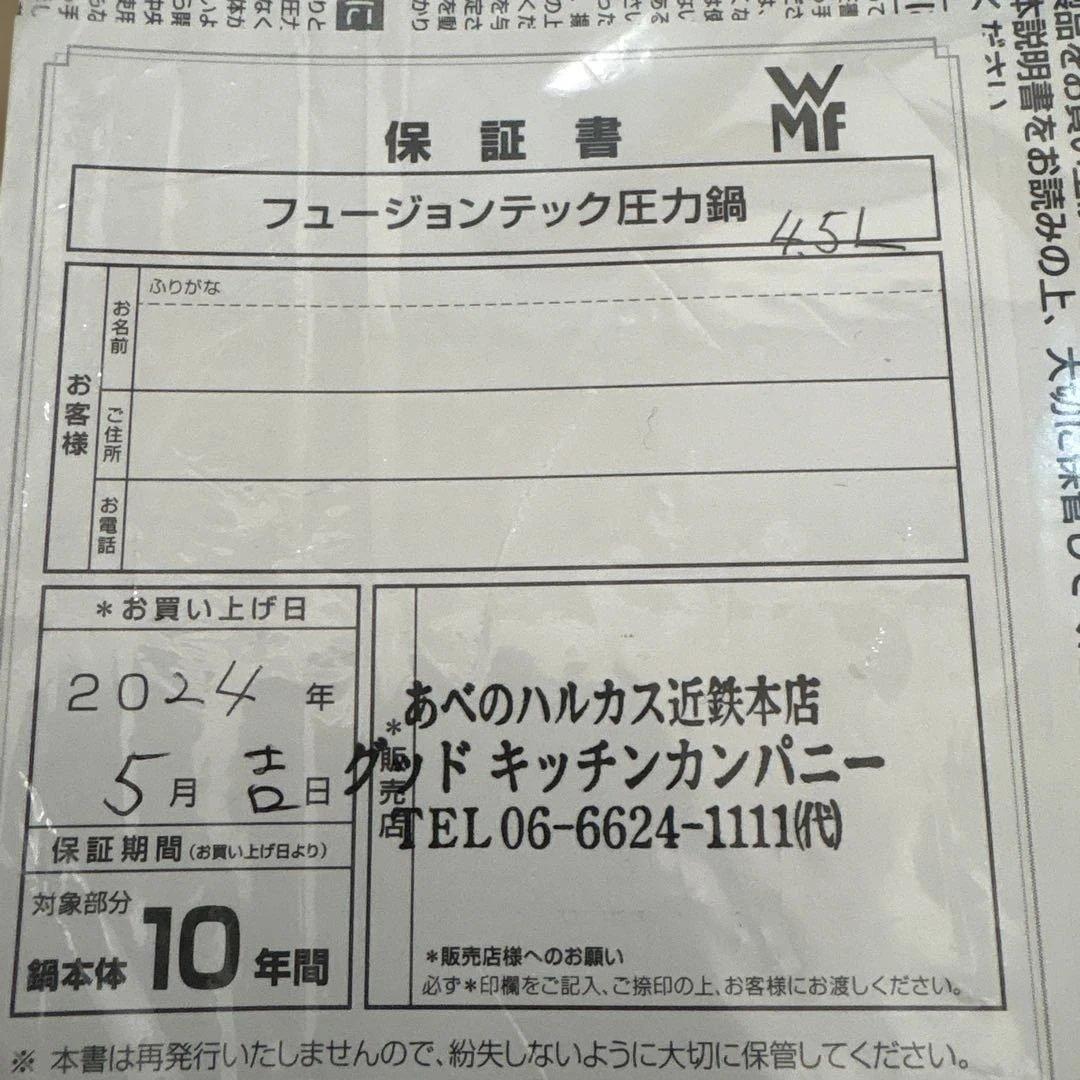 WMF
保証書
フュージョンテック圧力鍋 4.5L
お客様
お名前
ふりがな
ご住所
お電話
*お買い上げ日
2024年
5月吉日
保証期間(お買い上げ日より)
対象部分
鍋本体 10年間
*販売店
あべのハルカス近鉄本店
グッド キッチンカンパニー
TEL 06-6624-1111㈹
*販売店様へのお願い
必ず*印欄をご記入、ご捺印の上、お客様にお渡しください。
※ 本書は再発行いたしませんので、紛失しないように大切に保管してください。
本説明書をお読みの上、大切に保管して
ください